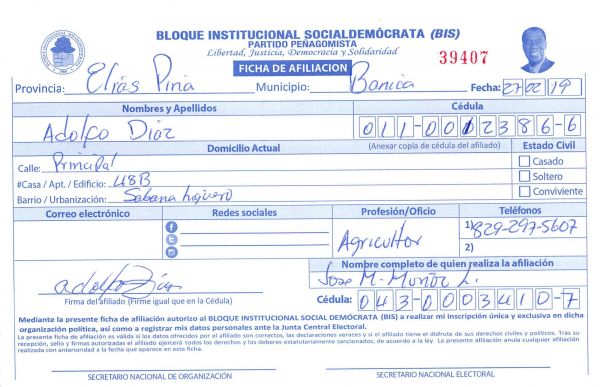 BLOQUE INSTITUCIONAL SOCIALDEMÓCRATA (BIS)
PARTIDO PEÑAGOMISTA
Libertad, Justicia, Democracia y Solidaridad
39407
FICHA DE AFILIACION
Provincia: Elías Piña Municipio: Banica Fecha: 27/02/19
Nombres y Apellidos Cédula
Adolfo Díaz 011-0012386-6
Domicilio Actual (Anexar copia de cédula del afiliado) Estado Civil
Calle: Principal Casado
#Casa / Apt. / Edificio: 48B Soltero
Barrio / Urbanización: Sabana higuero Conviviente
Correo electrónico Redes sociales Profesión/Oficio Teléfonos
Agricultor 1) 829-297-5607
2)
Nombre completo de quien realiza la afiliación
Adolfo Díaz Jose M. Muñoz L.
Firma del afiliado (Firme igual que en la Cédula) Cédula: 043-0003410-7
Mediante la presente ficha de afiliación autorizo al BLOQUE INSTITUCIONAL SOCIAL DEMÓCRATA (BIS) a realizar mi inscripción única y exclusiva en dicha
organización política, así como a registrar mis datos personales ante la Junta Central Electoral.
La presente ficha de afiliación es válida si los datos ofrecidos por el afiliado son correctos, las declaraciones veraces y si el afiliado tiene el disfrute de sus derechos civiles y políticos. Tras su
recepción, sello y firmas autorizadas el afiliado ejercerá todos los derechos y los deberes estatutariamente sancionados, de acuerdo a la ley. La presente afiliación anula cualquier afiliación
realizada con anterioridad a la fecha que aparece en esta ficha.
SECRETARIO NACIONAL DE ORGANIZACIÓN SECRETARIO NACIONAL ELECTORAL